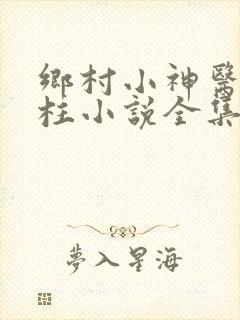 鄉村小神醫
柱小說全集
夢入星海